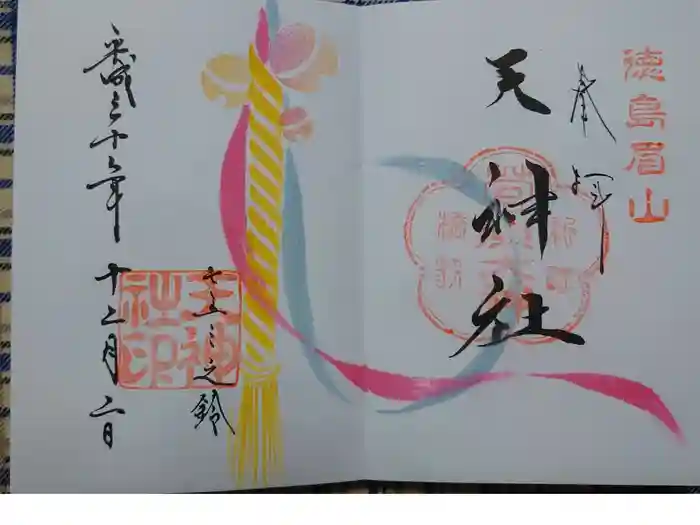 徳島眉山
奉拝
天神社
七五三之鈴
天神社印
平成三十年十二月二日